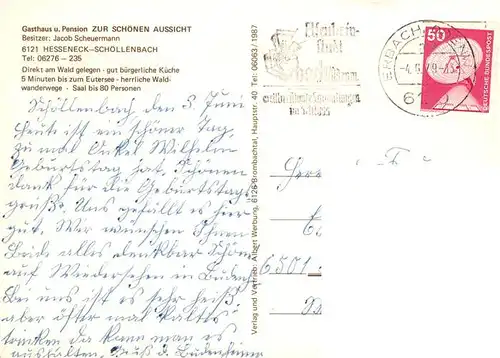 Gasthaus u. Pension ZUR SCHÖNEN AUSSICHT
Besitzer: Jacob Scheuermann
6121 HESSENECK-SCHÖLLENBACH
Tel: 06276 – 235
Direkt am Wald gelegen - gut bürgerliche Küche
5 Minuten bis zum Eutersee - herrliche Wald-
wanderwege - Saal bis 80 Personen
Schöllenbach, den 3. Juni
Heute ist ein schöner Tag,
zumal Onkel Wilhelm
Geburtstag hat. Schönen
dank für die Geburtstags
grüße. Uns gefällt es hier
gut. Wir wünschen Ihnen
Beide alles denkbar Schöne
auf Wiedersehen in Budenh
Bei uns ist es sehr heiß
aber öfter mal kaltes
trinken da kann man es
aushalten. Gruß d. Budenheimer
Verlag und Vertrieb: Albert Werbung, 6126 Brombachtal, Hauptstr. 40 Tel: 06063/1987
ERBACH, ODENW
50
DEUTSCHE BUNDESPOST
6501